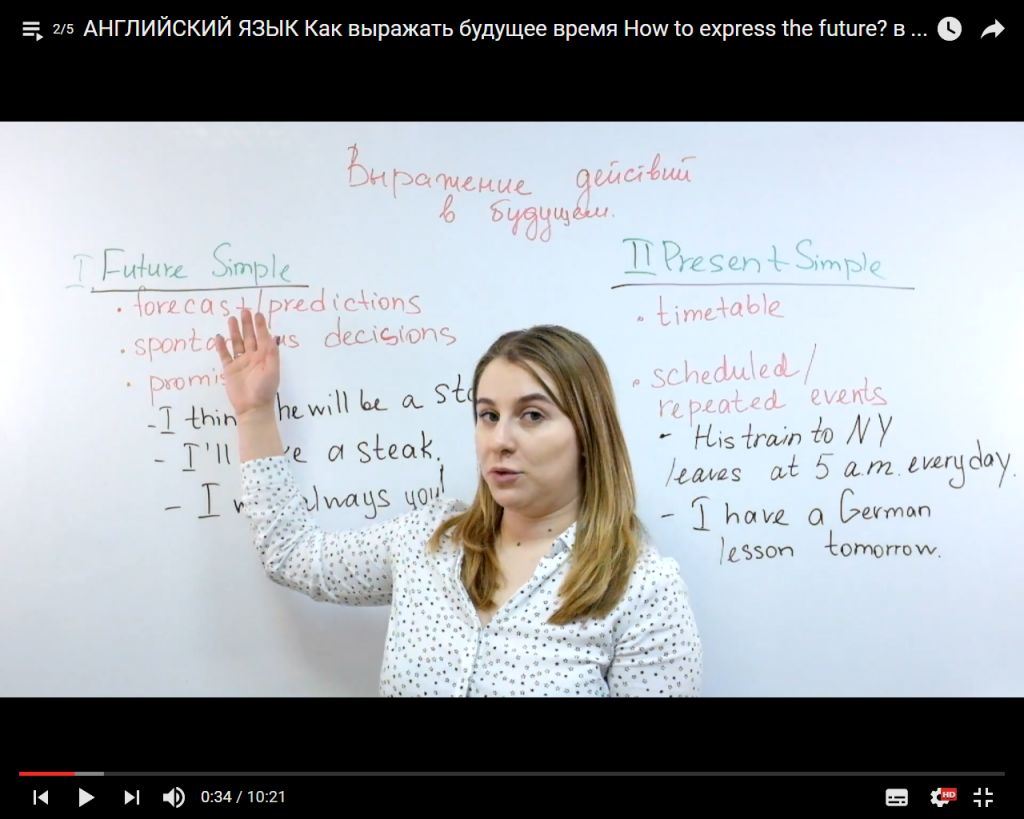 2/5 АНГЛИЙСКИЙ ЯЗЫК Как выражать будущее время How to express the future? в ...
Выражение действий
в будущем.
I Future Simple
• forecast/predictions
• spont us decisions
• promis
- I thin he will be a sta
- I'll e a steak.
- I w always you!
II Present Simple
• timetable
• scheduled/
repeated events
- His train to NY
leaves at 5 a.m. everyday.
- I have a German
lesson tomorrow.
0:34 / 10:21
HD